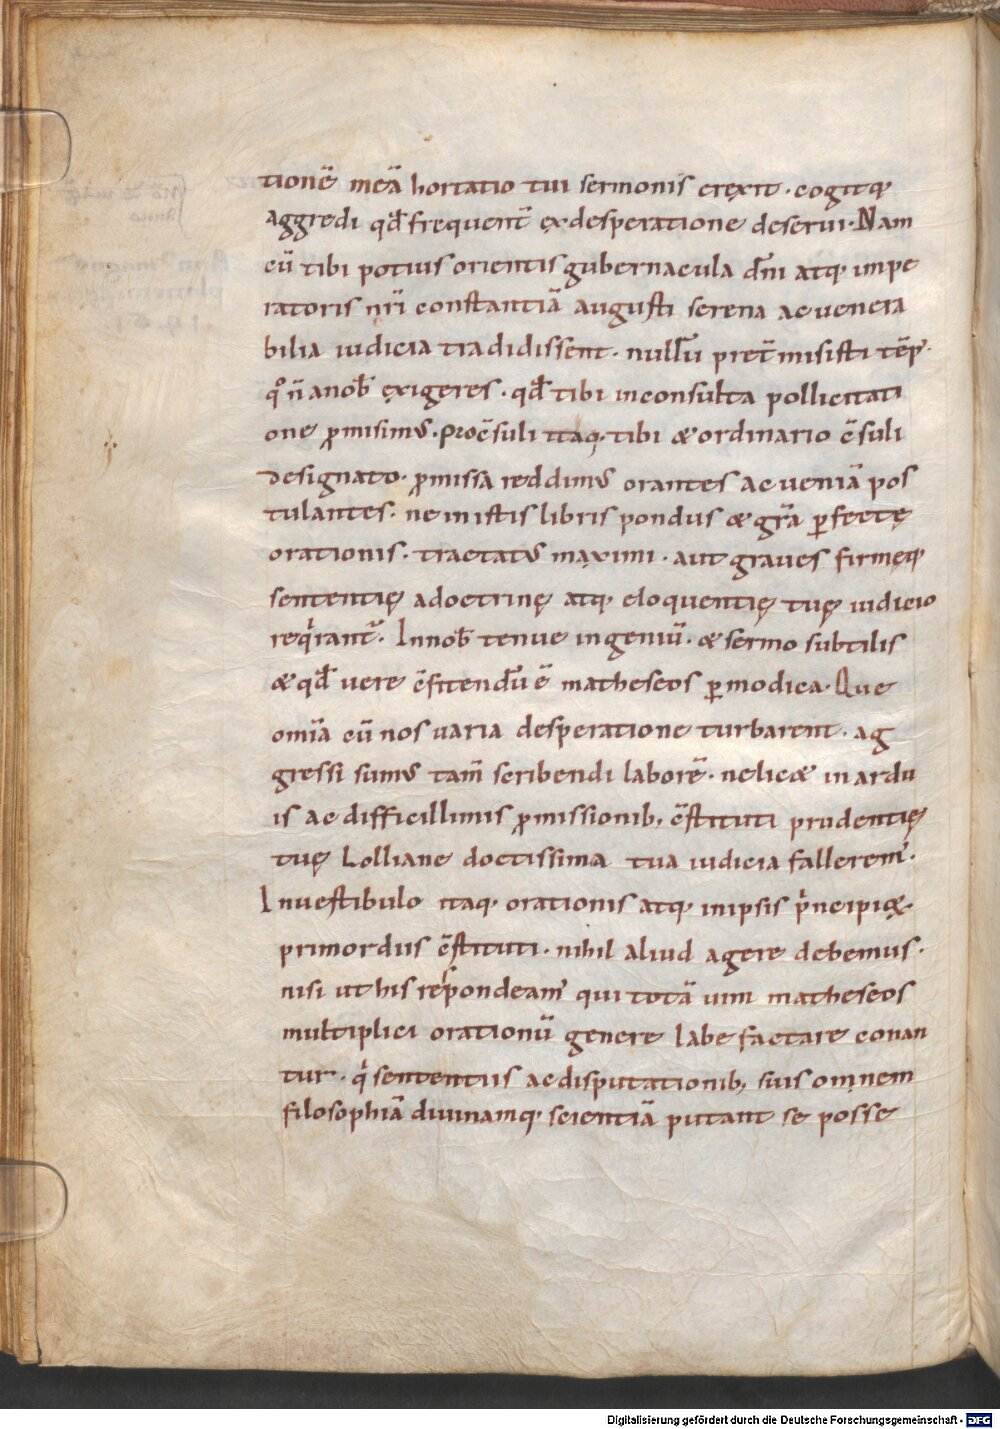 tionē meā hortatio tui sermonis erexit · cogitq;
aggredi qđ frequent̄ ex desperatione deserui · Nam
cū tibi potius orientis gubernacula dn̄i atq; impe
ratoris nr̄i constantiā augusti serena ac venera
bilia iudicia tradidissent · nullū pret̄misisti tēp̄ ·
qͦ n̄ a nob̄ exigeres · qđ tibi inconsulta pollicitati
one p̄misimꝰ · Procōsuli itaq; tibi & ordinario cōsuli
designato · p̄missa reddimꝰ orantes ac veniā pos
tulantes · ne in istis libris pondus & gr̄a ꝑfectę
orationis · tractatꝰ maximi · aut graves firmęq;
sententię a doctrinę atq; eloquentię tuę iudicio
reqͥrant᷒ · In nob̄ tenue ingeniū · & sermo subtilis
& qđ vere cōfitendū ē matheseos ꝑmodica · Que
om̄ia cū nos varia desperatione turbarent · ag
gressi sumꝰ tam̄ scribendi laborē · ne lic& in ardu
is ac difficillimis p̄missionib; cōstituti prudentię
tuę Lolliane doctissima tua iudicia falleremꝰ ·
In vestibulo itaq; orationis atq; in ipsis pͥncipiis
primordiis cōstituti · nihil aliud agere debemus ·
nisi ut his respondeamꝰ qui totā vim matheseos
multiplici orationū genere labefactare conan
tur · qͥ sententiis ac disputationib; suis omnem
filosophiā divinamq; scientiā putant se posse
Digitalisierung gefördert durch die Deutsche Forschungsgemeinschaft - DFG